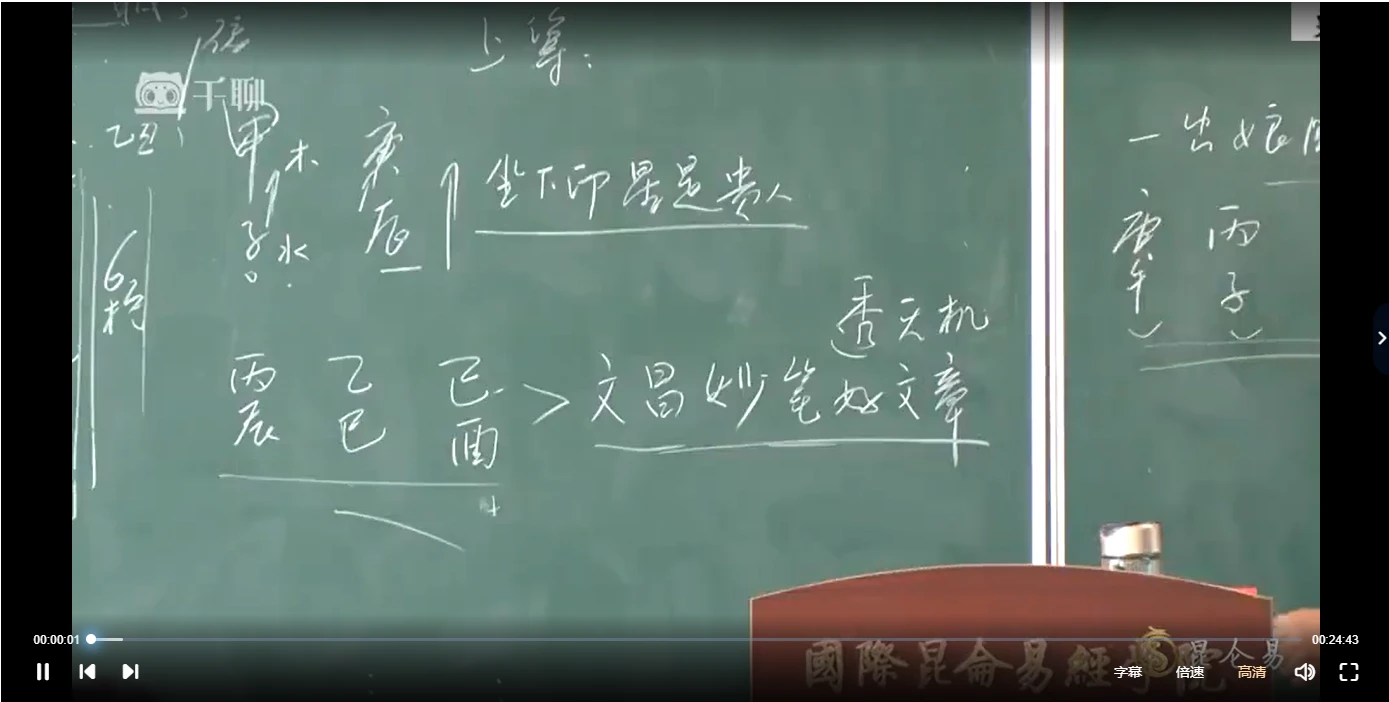 上等：
千聊
乙丑
甲木 庚
子水 辰
坐下印星是贵人
一出娘
6
庚 丙
午 子
透天机
丙 乙 己
辰 巳 酉
> 文昌妙笔好文章
时
00:00:01
00:24:43
國際昆侖易經學院
字幕 倍速 高清